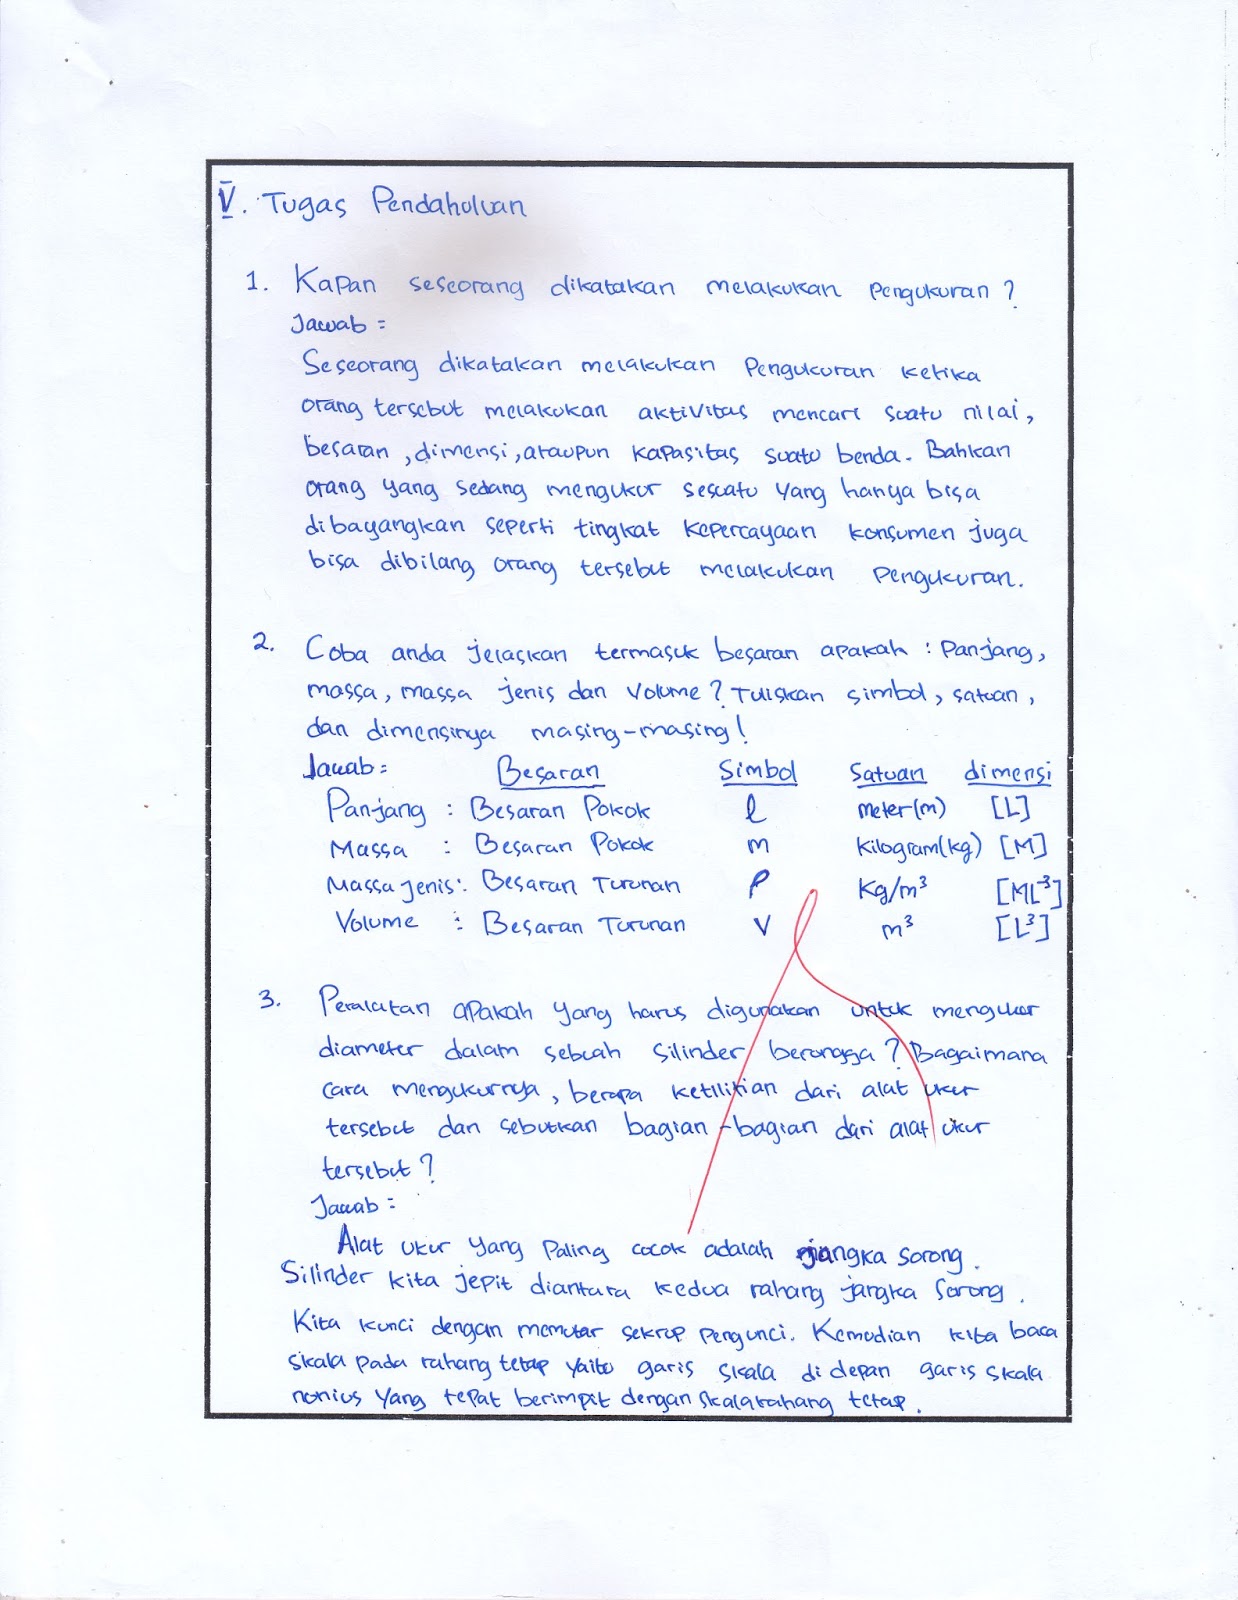 V. Tugas Pendahuluan
1. Kapan seseorang dikatakan melakukan pengukuran?
Jawab =
Seseorang dikatakan melakukan pengukuran ketika
orang tersebut melakukan aktivitas mencari suatu nilai,
besaran, dimensi, ataupun kapasitas suatu benda. Bahkan
orang yang sedang mengukur sesuatu yang hanya bisa
dibayangkan seperti tingkat kepercayaan konsumen juga
bisa dibilang orang tersebut melakukan pengukuran.
2. Coba anda jelaskan termasuk besaran apakah : Panjang,
massa, massa jenis dan volume? Tuliskan simbol, satuan,
dan dimensinya masing-masing!
Jawab = Besaran Simbol Satuan dimensi
Panjang : Besaran Pokok l meter(m) [L]
Massa : Besaran Pokok m kilogram(kg) [M]
Massa jenis : Besaran Turunan ρ Kg/m³ [ML⁻³]
Volume : Besaran Turunan V m³ [L³]
3. Peralatan apakah yang harus digunakan untuk mengukur
diameter dalam sebuah silinder berongga? Bagaimana
cara mengukurnya, berapa ketilitian dari alat ukur
tersebut dan sebutkan bagian-bagian dari alat ukur
tersebut?
Jawab =
Alat ukur yang paling cocok adalah jangka sorong.
Silinder kita jepit diantara kedua rahang jangka Sorong.
Kita kunci dengan memutar sekrup pengunci. Kemudian kita baca
skala pada rahang tetap yaitu garis skala di depan garis skala
nonius yang tepat berimpit dengan skala rahang tetap.